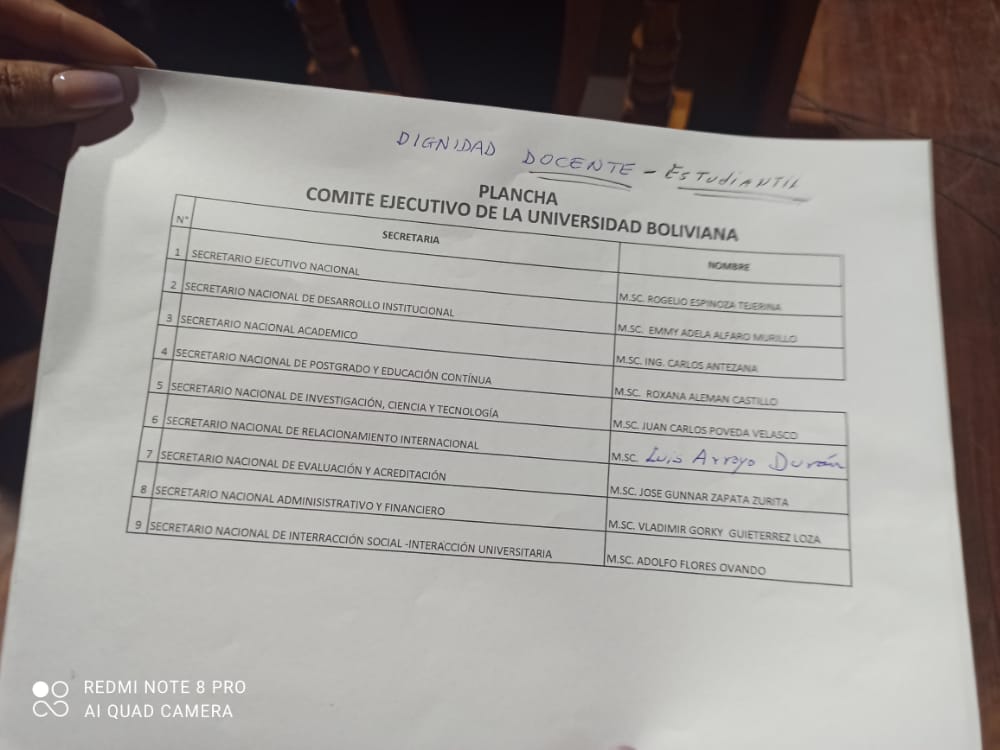 DIGNIDAD DOCENTE - ESTUDIANTIL
PLANCHA
COMITE EJECUTIVO DE LA UNIVERSIDAD BOLIVIANA
N° SECRETARIA NOMBRE
1 SECRETARIO EJECUTIVO NACIONAL M.SC. ROGELIO ESPINOZA TEJERINA
2 SECRETARIO NACIONAL DE DESARROLLO INSTITUCIONAL M.SC. EMMY ADELA ALFARO MURILLO
3 SECRETARIO NACIONAL ACADEMICO M.SC. ING. CARLOS ANTEZANA
4 SECRETARIO NACIONAL DE POSTGRADO Y EDUCACIÓN CONTÍNUA M.SC. ROXANA ALEMAN CASTILLO
5 SECRETARIO NACIONAL DE INVESTIGACIÓN, CIENCIA Y TECNOLOGÍA M.SC. JUAN CARLOS POVEDA VELASCO
6 SECRETARIO NACIONAL DE RELACIONAMIENTO INTERNACIONAL M.SC. Luis Arroyo Durán
7 SECRETARIO NACIONAL DE EVALUACIÓN Y ACREDITACIÓN M.SC. JOSE GUNNAR ZAPATA ZURITA
8 SECRETARIO NACIONAL ADMINISISTRATIVO Y FINANCIERO M.SC. VLADIMIR GORKY GUIETERREZ LOZA
9 SECRETARIO NACIONAL DE INTERRACCIÓN SOCIAL -INTERACCIÓN UNIVERSITARIA M.SC. ADOLFO FLORES OVANDO
REDMI NOTE 8 PRO
AI QUAD CAMERA